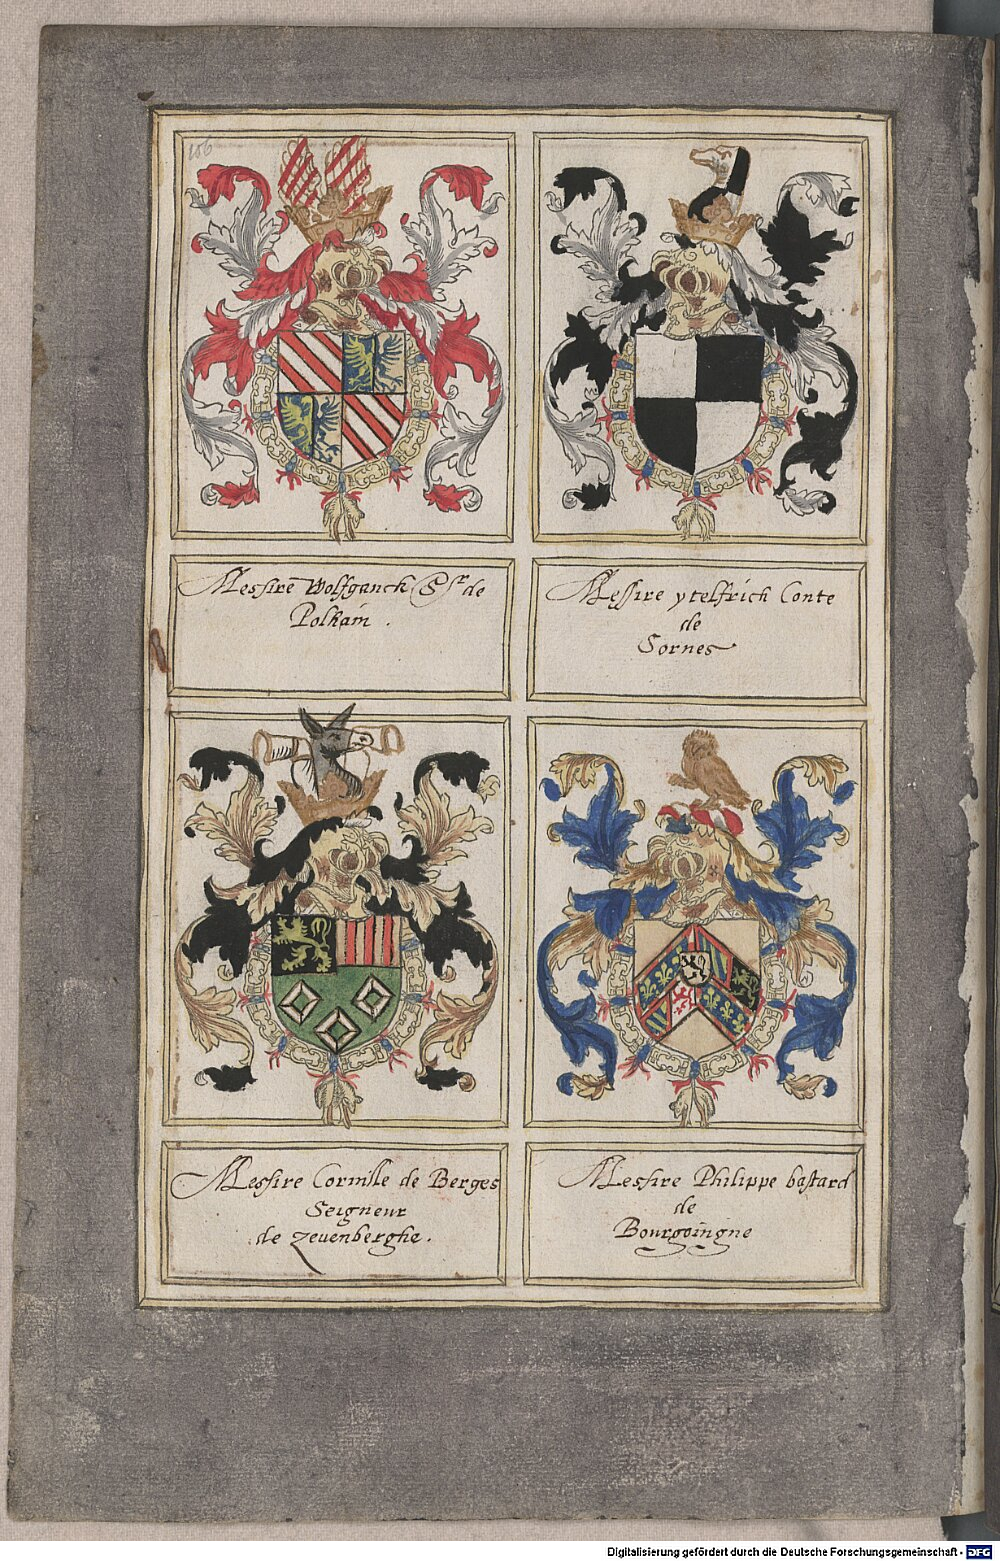 106
Messire Wolfganck Sr de
Polhain .
Messire ytelfrich Conte
de
Sornes
Messire Cornille de Berges
Seigneur
de zevenberghe .
Messire Philippe bastard
de
Bourgoingne
Digitalisierung gefördert durch die Deutsche Forschungsgemeinschaft - DFG